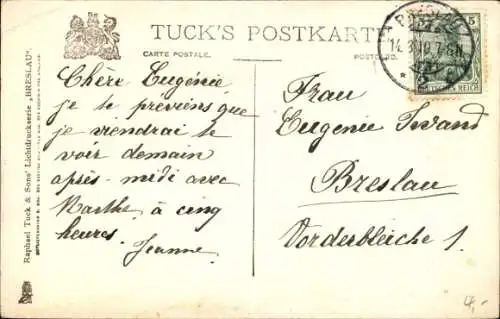 TUCK'S POSTKARTE
CARTE POSTALE.
POSTCARD.
Raphael Tuck & Sons' Lichtdruckserie „BRESLAU"
BRESLAU
14.3.
7-8N
5
DEUTSCHES REICH
Chère Eugénie
je te préviens que
je viendrai te
voir demain
après-midi avec
Marthe à cinq
heures.
Jeanne
Frau
Eugenie Iwand
Breslau
Vorderbleiche 1.
4,-